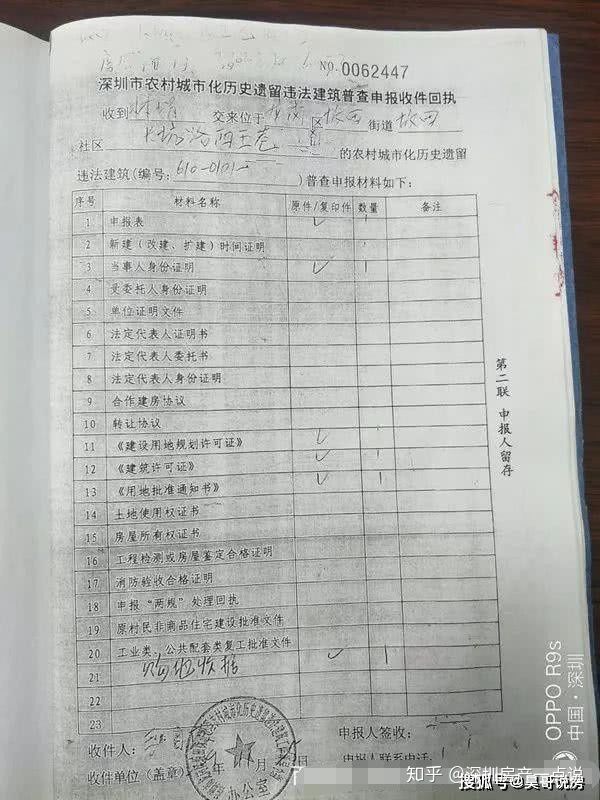 NO.0062447
深圳市农村城市化历史遗留违法建筑普查申报收件回执
收到 交来位于 区 坂田 街道 坂田
社区 的农村城市化历史遗留
违法建筑(编号: 610-0101- )普查申报材料如下:
序号 材料名称 原件/复印件 数量 备注
1 申报表 ✓
2 新建(改建、扩建)时间证明
3 当事人身份证明 ✓ 1
4 受委托人身份证明
5 单位证明文件
6 法定代表人证明书
7 法定代表人委托书
8 法定代表人身份证明
9 合作建房协议
10 转让协议
11 《建设用地规划许可证》 ✓
12 《建筑许可证》 ✓ 1
13 《用地批准通知书》 ✓ 1
14 土地使用权证书
15 房屋所有权证书
16 工程检测或房屋鉴定合格证明
17 消防验收合格证明
18 申报“两规”处理回执
19 原村民非商品住宅建设批准文件
20 工业类、公共配套类复工批准文件
21 收据 ✓ 1
22
23
收件人:
申报人签收:
收件单位(盖章)
申报人联系电话:
办公室
第二联 申报人留存
OPPO R9s
中国·深圳
知乎 @深圳房产一点说
搜狐号@昊哥说房